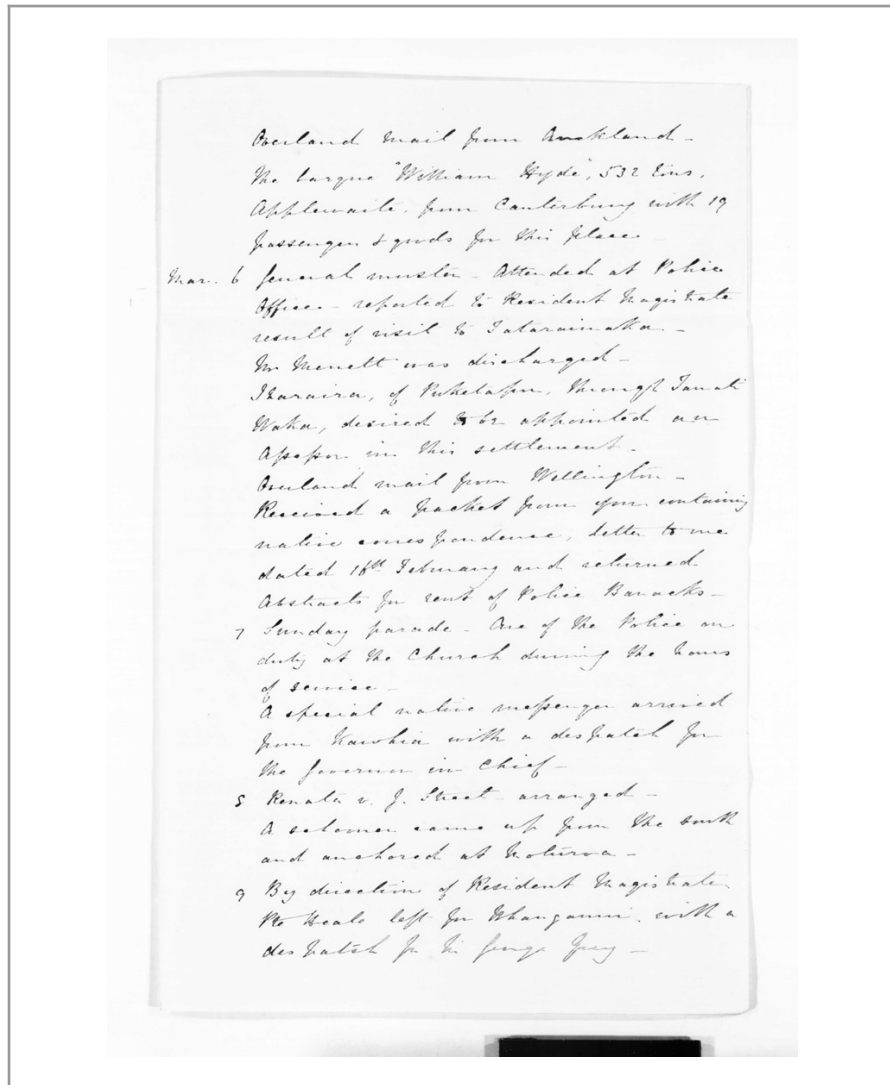 Overland mail from Auckland -
The barque "William Hyde", 532 tons,
Applewaite, from Canterbury with 19
passengers & goods for this place -
Mar. 6 General muster - Attended at Police
Office - reported to Resident Magistrate
result of visit to Tataraimaka -
Mr was discharged -
of Puketapu, through Tamati
Waka, desired to be appointed an
Assessor in this settlement -
Overland mail from Wellington -
Received a packet from you containing
native correspondence, letter to me
dated 18th February and returned
Abstracts for rent of Police Barracks -
7 Sunday parade - One of the Police on
duty at the Church during the hours
of service -
A special native messenger arrived
from Kawhia with a despatch for
the Governor in Chief -
Renata v. J. Street - arranged -
A schooner came up from the south
and anchored at Moturoa -
9 By direction of Resident Magistrate
Pte left for Whanganui with a
despatch for Sir George Grey -